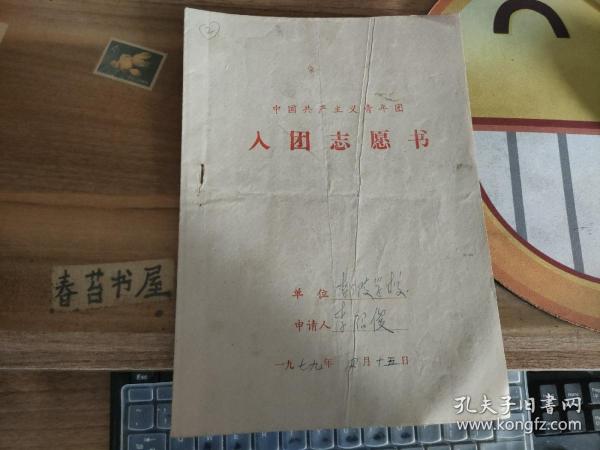 ②
中国共产主义青年团
入团志愿书
单位 学校
申请人 李 俊
一九七九年 月十五日
春苔书屋
孔夫子旧书网
www.kongfz.com